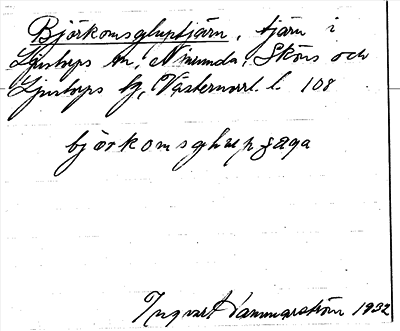 Björkomsgluptjärn, tjärn i
Ljustorps sn, Njurunda, Sköns och
Ljustorps tg, Västernorrl. l. 108
björkomsglupgaga
Ingvar Hammarström 1932